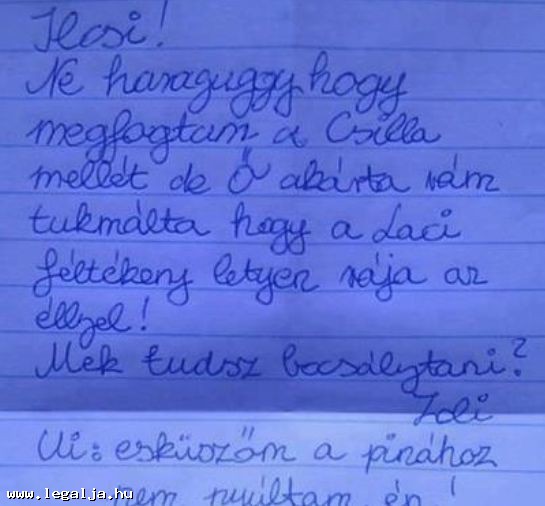 Ilcsi!
Ne haraguggy hogy
megfogtam a Csilla
mellét de Ő akárta rám
tukmálta hogy a Laci
féltékeny letyen rája az
éllyel!
Mek tudsz bocsálytani?
Zoli
Ui: esküszöm a pinához
nem nyúltam én!
www.legalja.hu